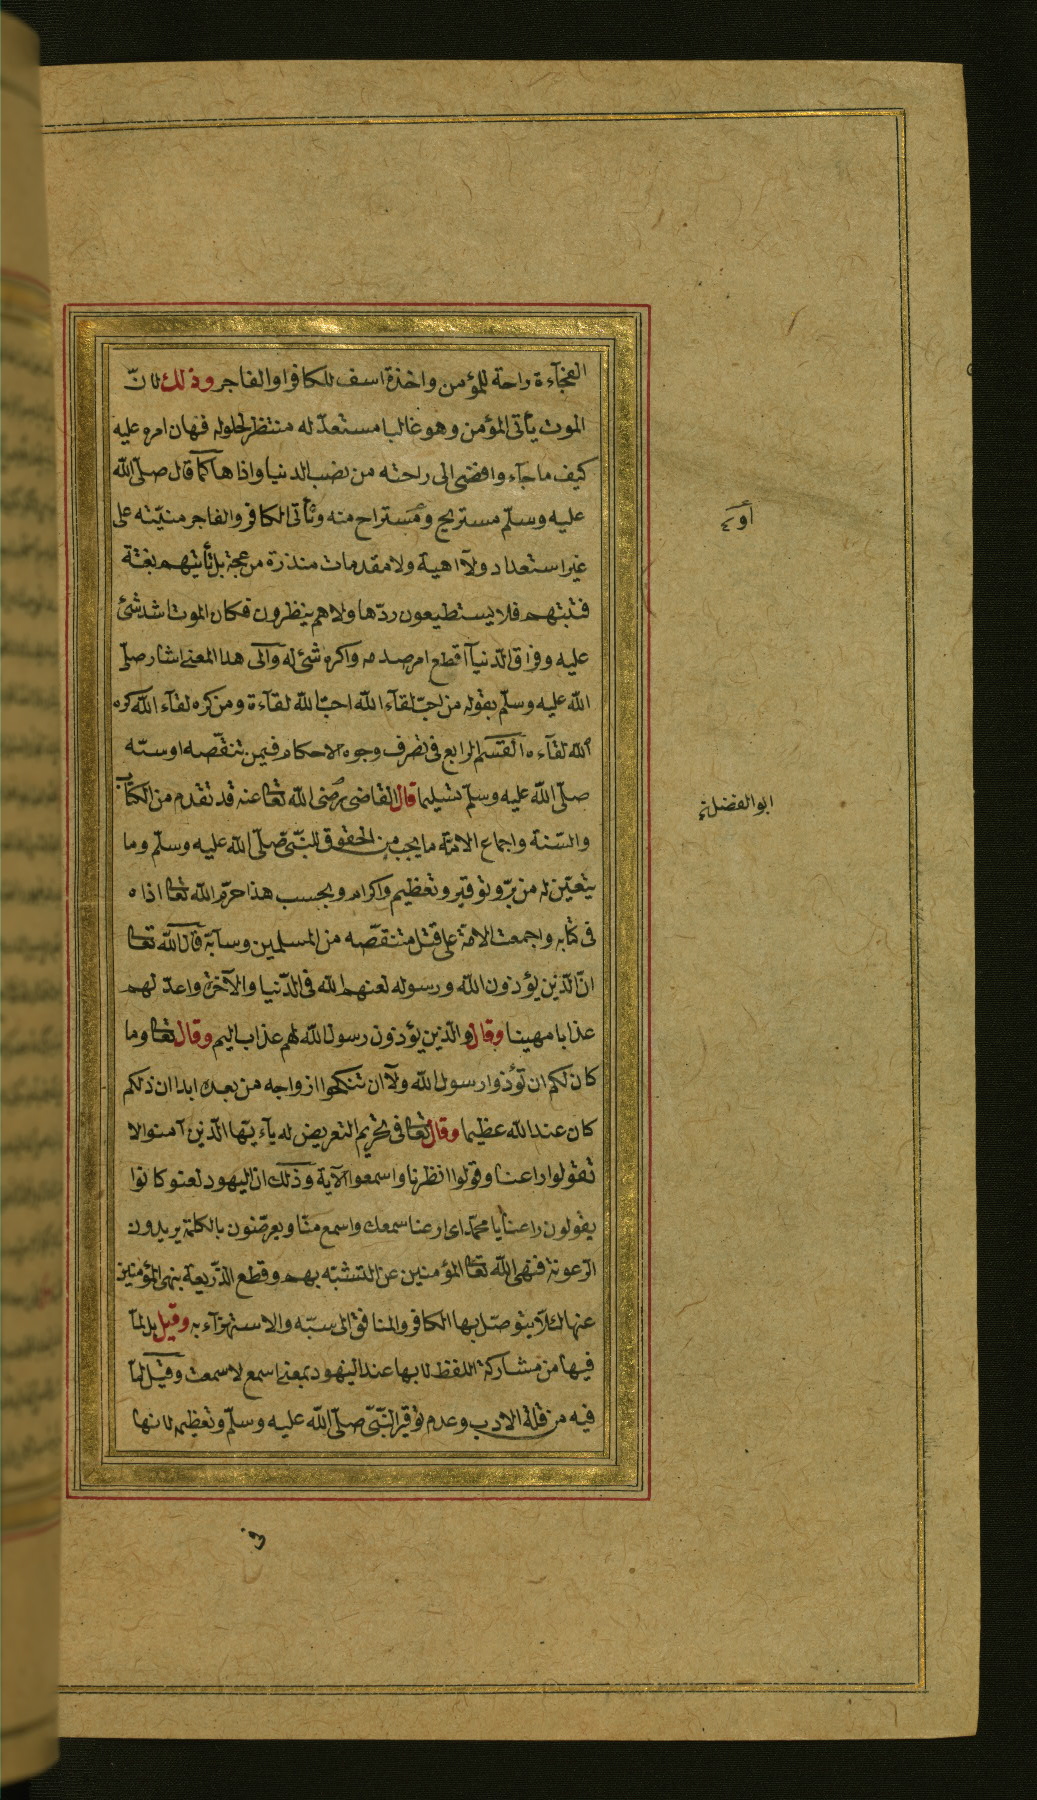 الفجآءة راحة للمؤمن واخذة اسف للكافر او الفاجر وذلك لانّ
الموت يأتى المؤمن وهو غالبا مستعدّ له منتظر لحلوله فهان امره عليه
كيف ما جآء وافضى الى راحته من نصب الدنيا واذاها كما قال صلّى الله
عليه وسلّم مستريح ومستراح منه وتأتى الكافر والفاجر منيّته على
غير استعداد ولا اهبة ولا مقدمات منذرة مزعجة بل تأتيهم بغتة
فتبهتهم فلا يستطيعون ردّها ولا هم ينظرون فكان الموت اشد شئ
عليه وفراق الدّنيا افظع امر صدمه واكره شئ له والى هذا المعنى اشار صلّى
الله عليه وسلّم بقوله من احبّ لقآء الله احبّ الله لقآءه ومن كره لقآء الله كره
الله لقآءه القسم الرابع فى تصرف وجوه الاحكام فيمن تنقّصه او سبّه
صلّى الله عليه وسلّم تسليما قال القاضى رضى الله تعا عنه قد تقدم من الكتاب
والسّنة واجماع الامّة ما يجب من الحقوق للنّبىّ صلّى الله عليه وسلّم وما
يتعيّن له من برّ وتوقير وتعظيم واكرام وبحسب هذا حرّم الله تعا اذاه
فى كتابه واجمعت الامة على قتل متنقّصه من المسلمين وسابّه قال الله تعا
انّ الّذين يؤذون الله ورسوله لعنهم الله فى الدّنيا والآخرة واعدّ لهم
عذابا مهينا وقال والّذين يؤذون رسول الله لهم عذاب اليم وقال تعا وما
كان لكم ان تؤذوا رسول الله ولا ان تنكحوا ازواجه من بعده ابدا ان ذلكم
كان عند الله عظيما وقال تعا فى تحريم التعريض له يآءيّها الّذين آمنوا لا
تقولوا راعنا وقولوا انظرنا واسمعوا الآية وذلك ان اليهود لعنو كانوا
يقولون راعنا يا محمّد اى ارعنا سمعك واسمع منّا ويعرّضون بالكلمة يريدون
الرّعونة فنهى الله تعا المؤمنين عن التشبّه بهم وقطع الذّريعة بنهى المؤمنين
عنها لئلا يتوصّل بها الكافر والمنافق الى سبّه والاستهزآء به وقيل بل لما
فيها من مشاركة اللفظ لانها عند اليهود بمعنى اسمع لا سمعت وقيل لما
فيه من قلة الادب وعدم توقير النّبىّ صلّى الله عليه وسلّم وتعظيمه لانها
ابو الفضل